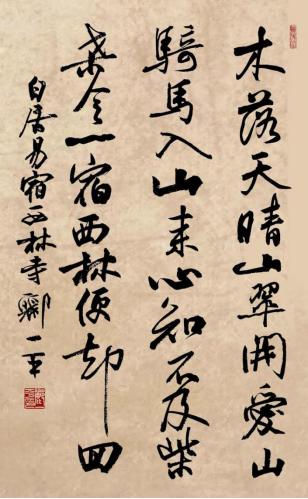 木落天晴山翠開愛山
騎馬入山来心知不及柴
桑令一宿西林便却回
白居易宿西林寺 一平